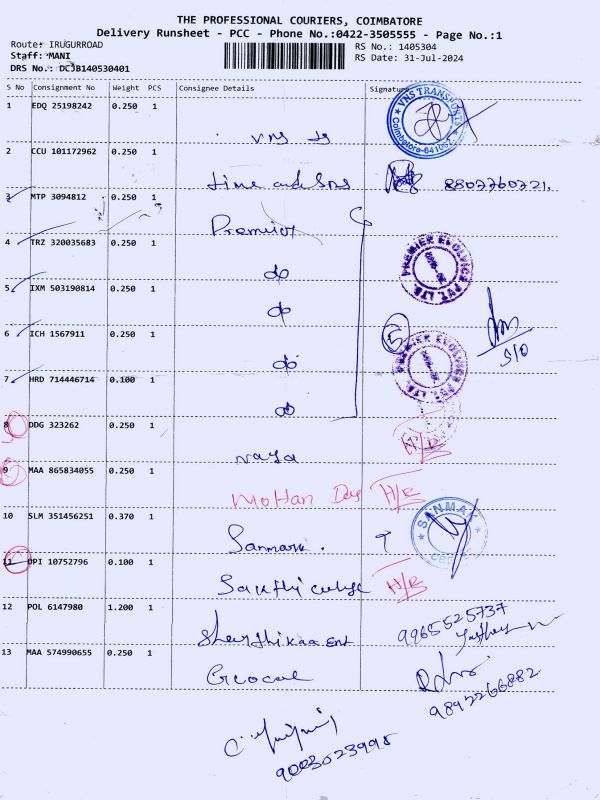 THE PROFESSIONAL COURIERS, COIMBATORE
Delivery Runsheet - PCC - Phone No.:0422-3505555 - Page No.:1
Route: IRUGURROAD
RS No.: 1405304
Staff: MANI
RS Date: 31-Jul-2024
DRS No.: DCJB140530401
S No Consignment No Weight PCS Consignee Details Signature
1 EDQ 25198242 0.250 1
VNS TRANSPORTS
Coimbatore-641062
2 CCU 101172962 0.250 1
8807760721.
3 MTP 3094812 0.250 1
Premier
4 TRZ 320035683 0.250 1
do
PREMIER EVOLVICS PVT. LTD.
5 IXM 503190814 0.250 1
do
6 ICH 1567911 0.250 1
do
5
S/O
PREMIER EVOLVICS PVT. LTD.
7 HRD 714446714 0.100 1
do
8 DDG 323262 0.250 1
H/R
9 MAA 865834055 0.250 1
Mohan H/R
10 SLM 351456251 0.370 1
Sanmark.
SANMAK
11 UPI 10752796 0.100 1
H/R
12 POL 6147980 1.200 1
9965525737
13 MAA 574990655 0.250 1
9892266882
9003023995